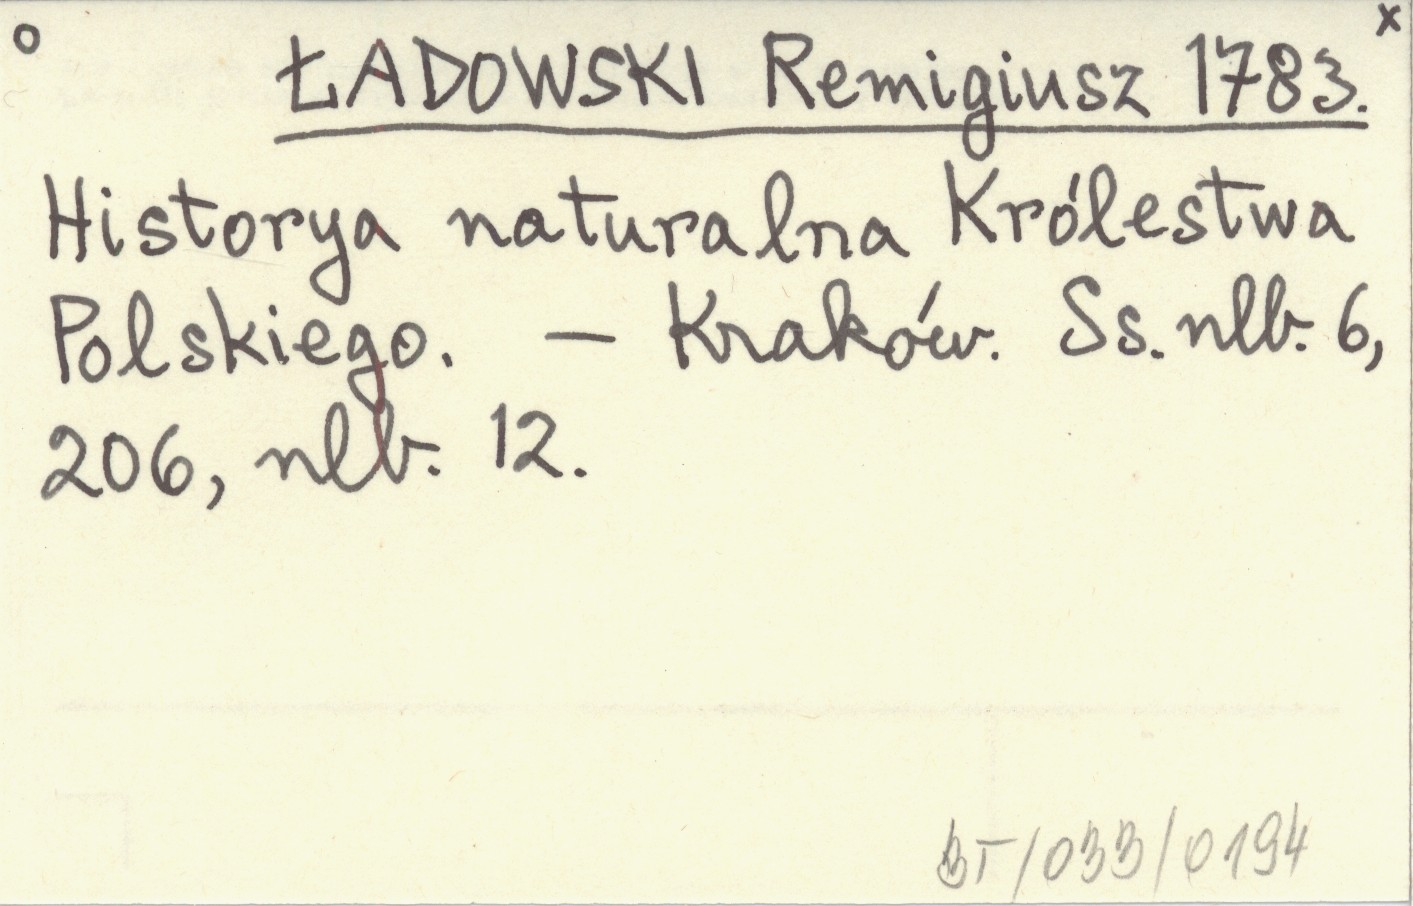 o x
ŁADOWSKI Remigiusz 1783.
Historya naturalna Królestwa
Polskiego. — Kraków. Ss. nlb. 6,
206, nlb. 12.
BT/033/0194